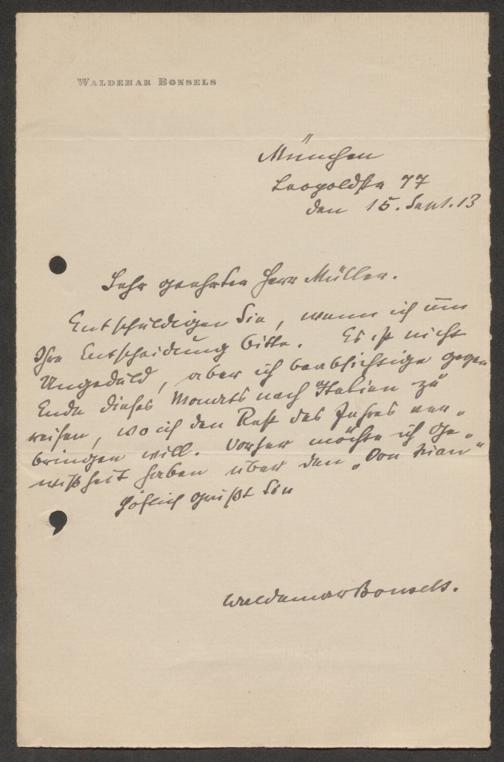 WALDEMAR BONSELS
München
Leopoldstr 77
den 15. Sept. 13
Sehr geehrter Herr Müller.
Entschuldigen Sie, wenn ich um
Ihre Entscheidung bitte. Es ist nicht
Ungeduld, aber ich beabsichtige gegen
Ende dieses Monats nach Italien zu
reisen, wo ich den Rest des Jahres ver-
bringen will. Vorher möchte ich Ge-
wißheit haben über den „Don Juan“
Höflich grüßt Sie
Waldemar Bonsels.